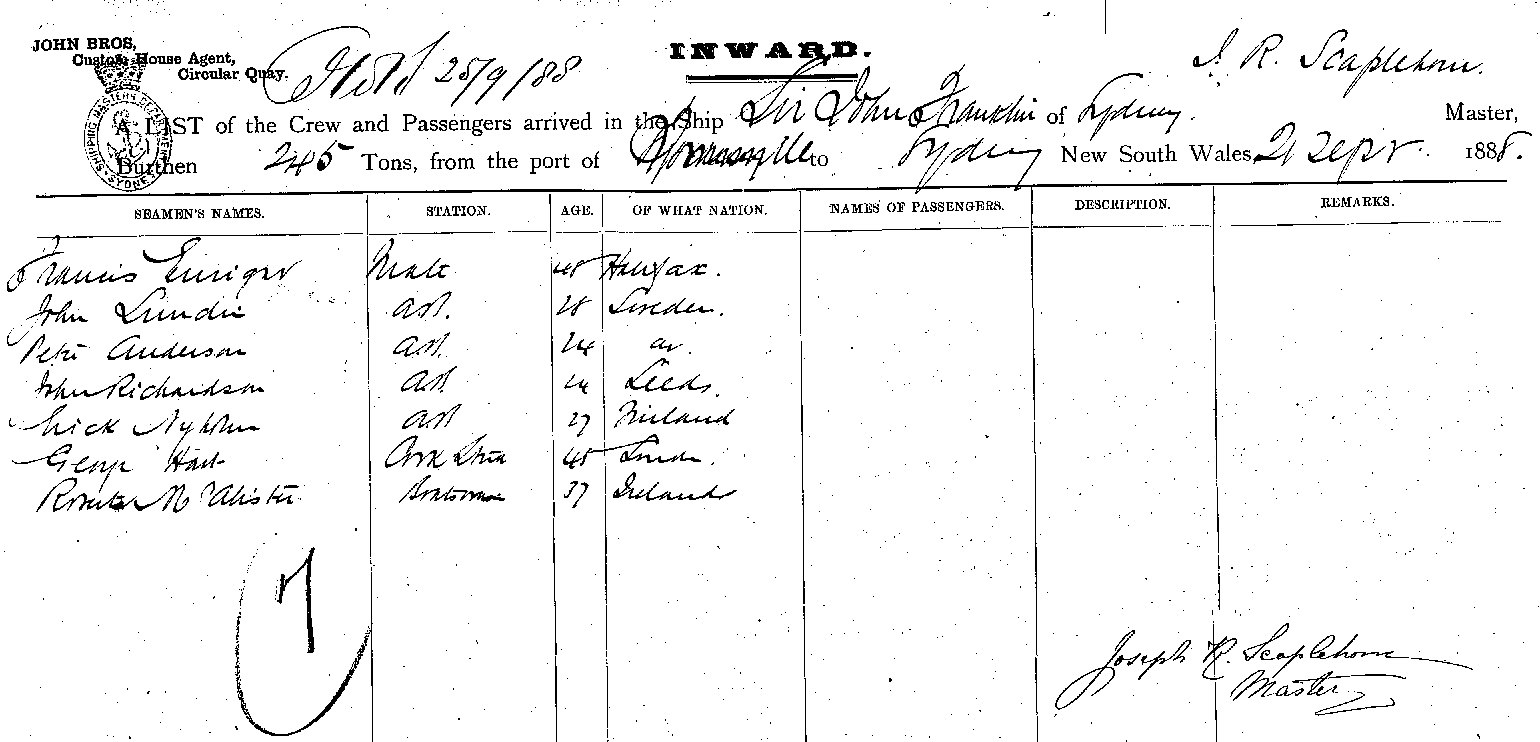 JOHN BROS,
Custom House Agent,
Circular Quay.
25/9/88
INWARD.
J. R. Scaplehorn.
A LIST of the Crew and Passengers arrived in the Ship Sir John Franklin of Sydney. Master,
Burthen 245 Tons, from the port of to Sydney New South Wales, 21 Sepr. 1888.
SHIPPING MASTERS DEPARTMENT SYDNEY
SEAMEN'S NAMES. STATION. AGE. OF WHAT NATION. NAMES OF PASSENGERS. DESCRIPTION. REMARKS.
Francis Mate 48 Halifax.
John Lundie AB. 28 Sweden.
Peter Anderson AB. 24
John Richardson AB 24 Leeds.
AB 27 Finland
George Hart Cook 45
McAlister Boatswain 37 Ireland
7
Joseph R. Scaplehorn
Master